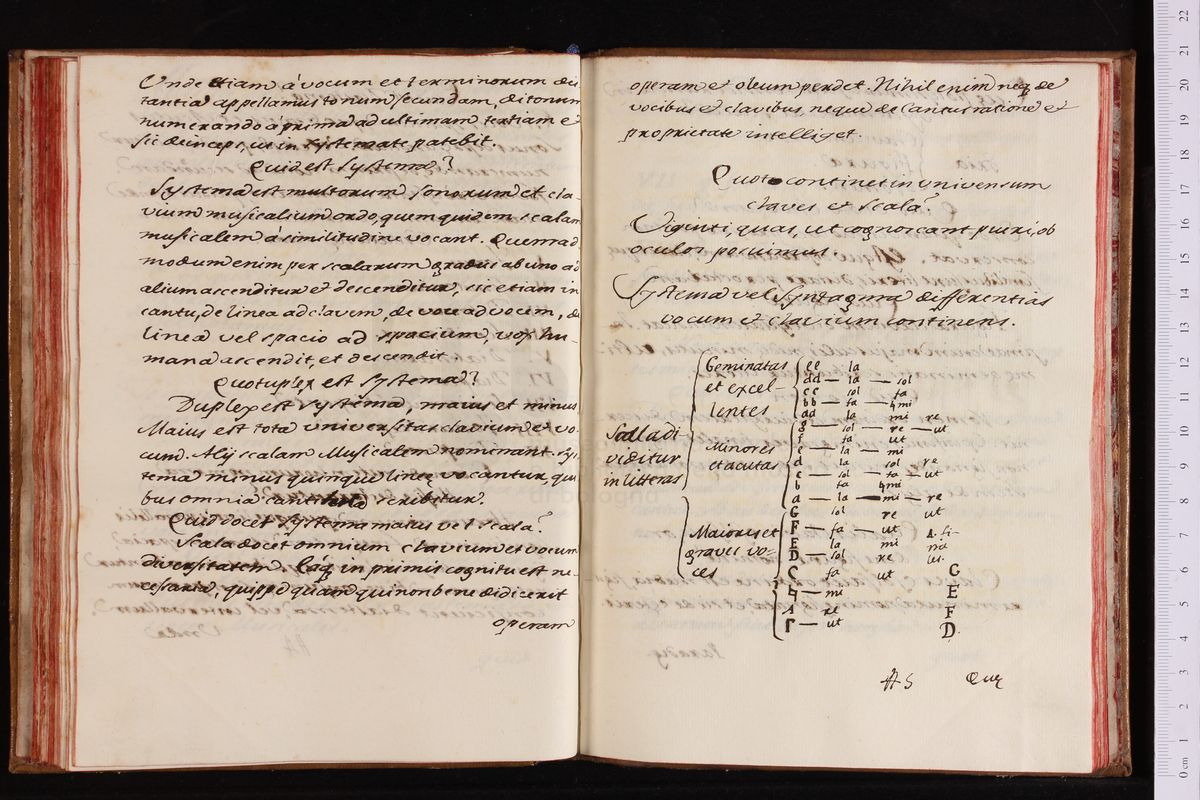 Unde Etiam à vocum et terminorum dis
tantia appellamus tonum secundam, ditonum
numerando à prima ad ultimam tertiam e
sic deinceps, ut in systemate patebit.
Quid est Systema?
Systema est multorum sonorum et cla-
vium musicalium ordo, quem quidem scalam
musicalem à similitudine vocant. Quemad
modum enim per scalarum gradus ab uno ad
alium ascenditur et descenditur, sic etiam in
cantu, de linea ad clavem, de voce ad vocem, de
linea vel spacio ad spacium, vox hu-
mana ascendit, et descendit.
Quotuplex est Systema?
Duplex est Systema, maius et minus
Maius est tota universitas clavium et vo
cum. Alij scalam Musicalem nominant. Sys
tema minus quinque lineæ vocantur, qui
bus omnia scribitur.
Quid docet Systema maius vel scala?
Scala docet omnium clavium et vocum
diversitatem. Eaq in primis cognitu est ne-
cessaria, quippe quam qui non bene didicerit
operam
operam et oleum perdet. Nihil enim neq de
vocibus et clavibus, neque de Cantus ratione et
proprietate intelliget.
Quot continet in universum
claves et Scala?
Viginti, quas, ut cognoscant pueri, ob
oculos posuimus.
Systema vel Syntagma differentias
vocum et clavium continens.
Scala di-
viditur
in litteras
Geminatas
et excel-
lentes
ee la
dd — la — sol
cc sol fa
bb — fa — ♮mi
aa la mi re
Minores
et acutas
g — sol — re — ut
f fa ut
e — la — mi
d la sol re
c — sol — fa — ut
b fa ♮mi
a — la — mi — re
Maiores et
graves vo-
ces
G sol re ut
F — fa — ut
E la mi
D — sol re
C fa ut
♮ — mi
A re
Γ — ut
A. fi-
na
les.
G
E
F
D.
A5 Quę